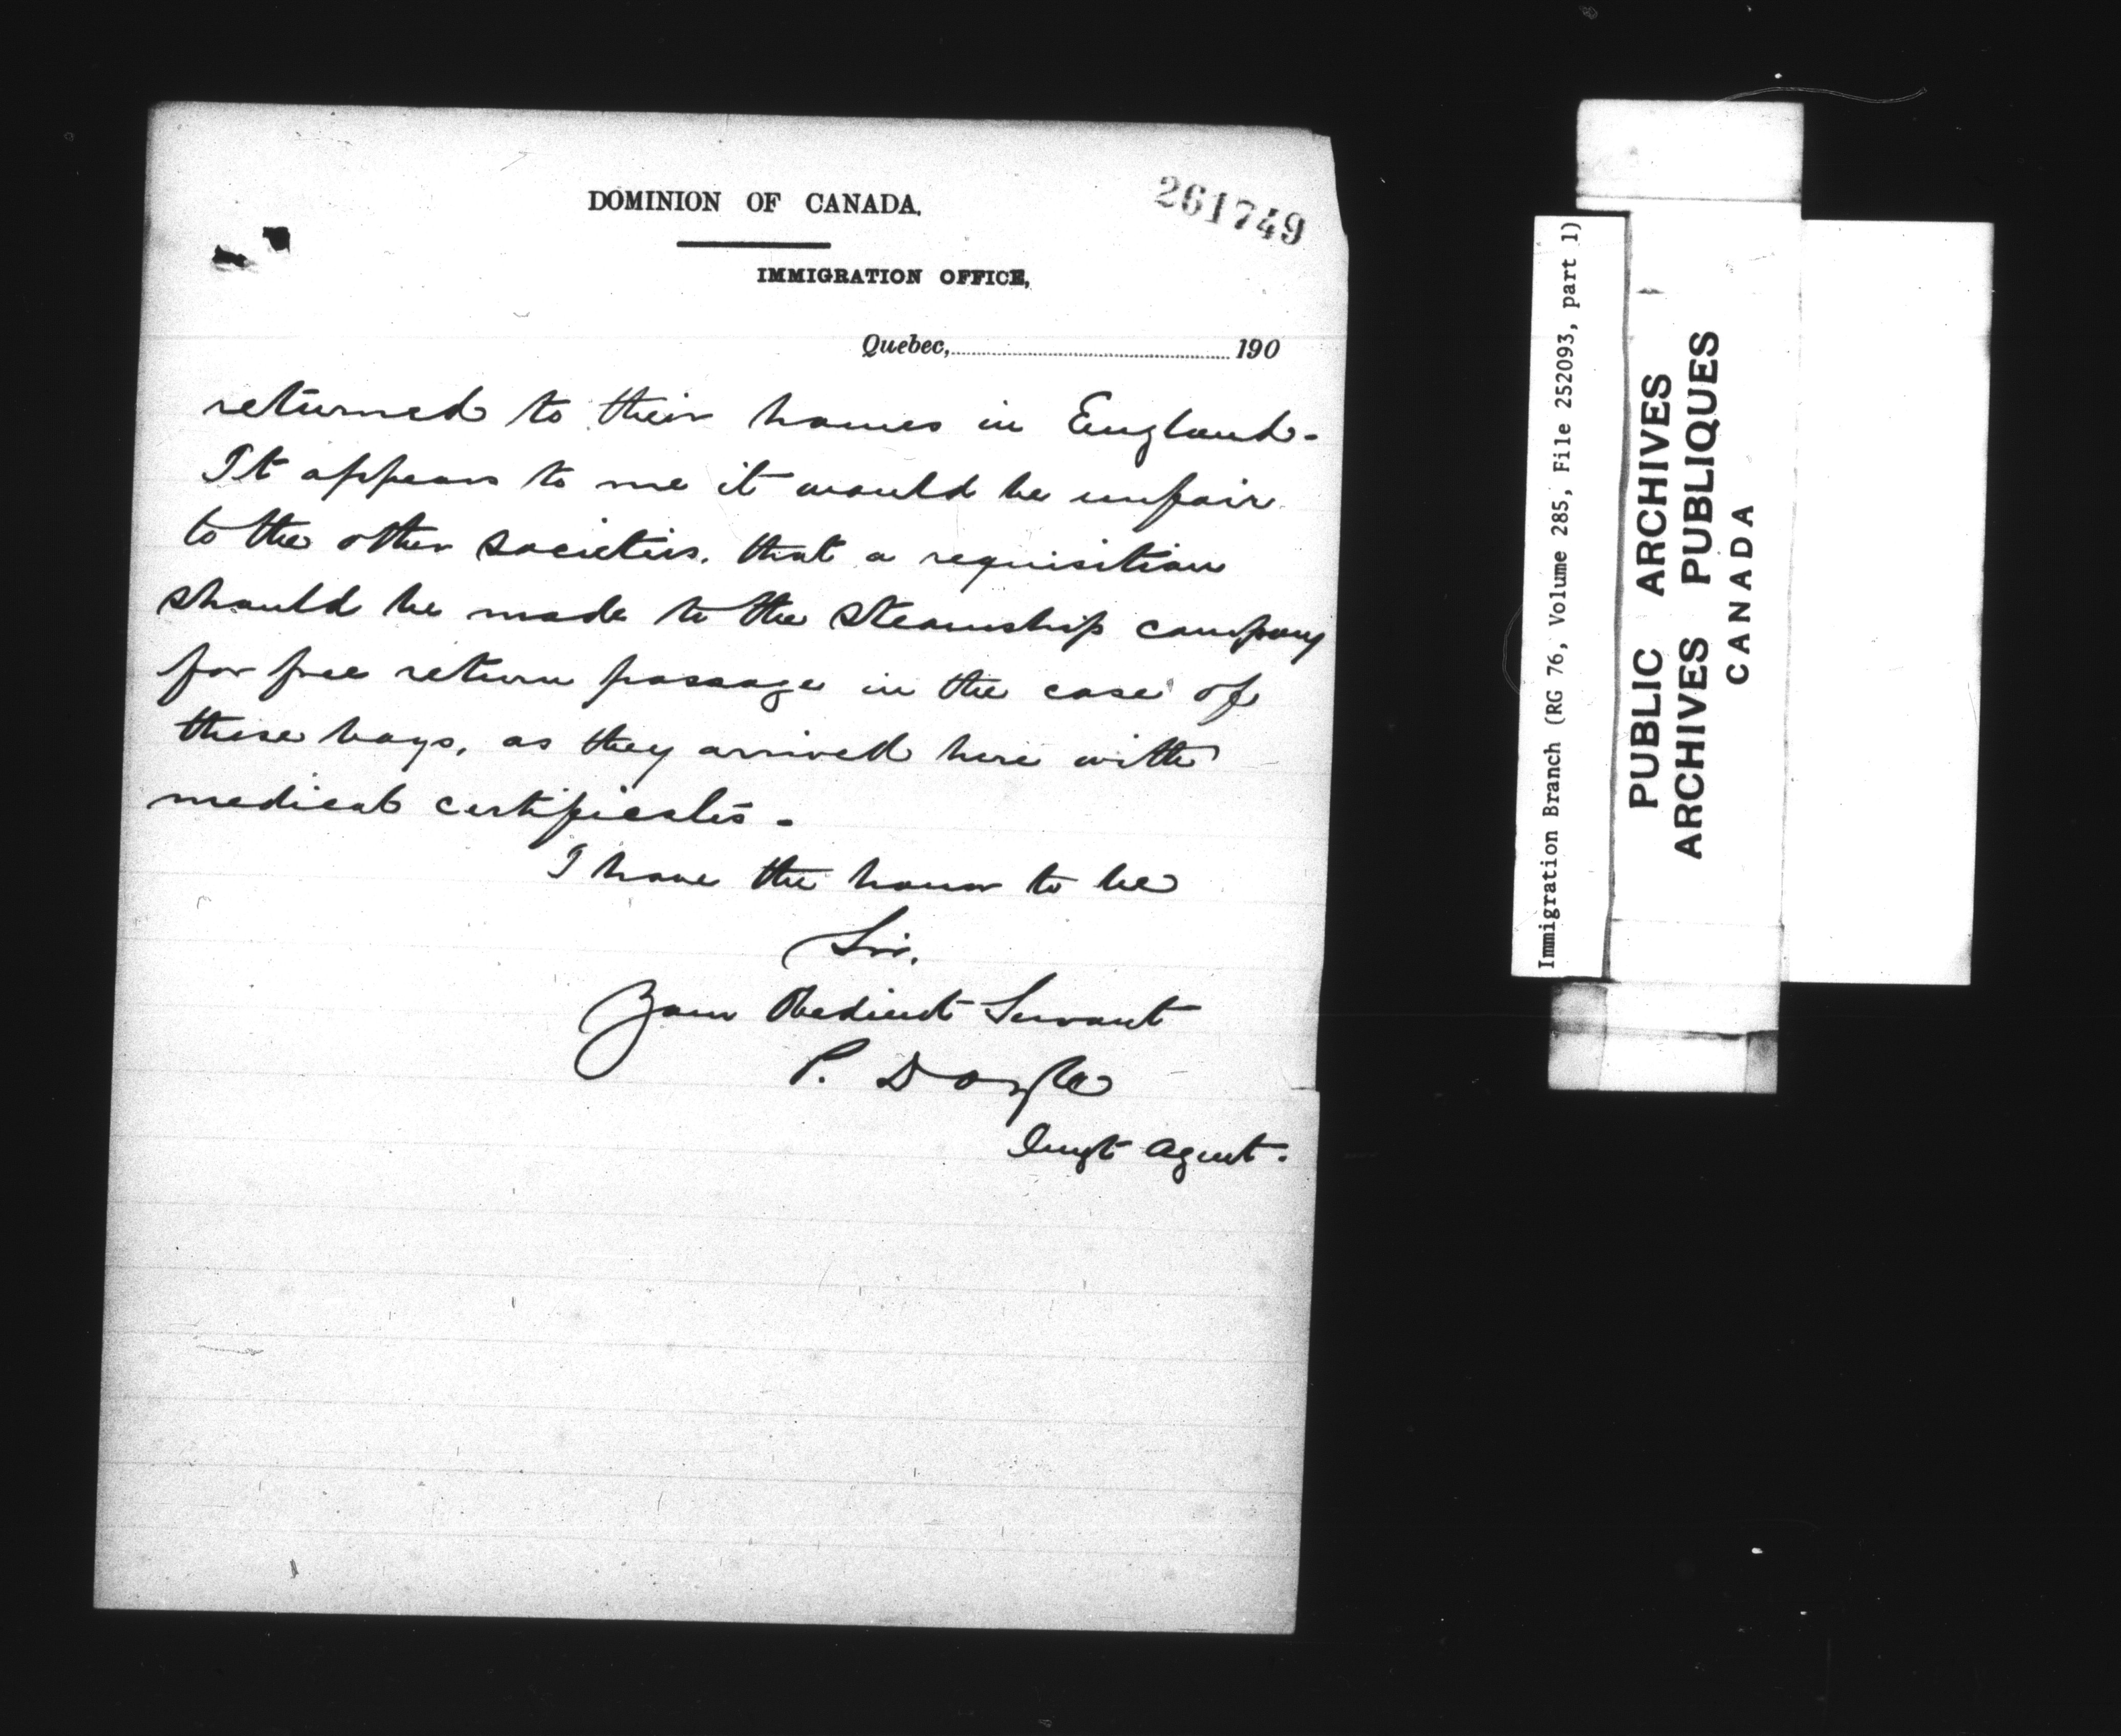 DOMINION OF CANADA.
261749
IMMIGRATION OFFICE,
Quebec,..........190
returned to their homes in England.
It appears to me it would be unfair
to the other societies. that a requisition
should be made to the steamship company
for free return passage in the case of
these boys, as they arrived here with
medical certificates.
I have the honor to be
Sir.
Your Obedient Servant
P. Doyle
Immgt Agent.
Immigration Branch (RG 76, Volume 285, File 252093, part 1)
PUBLIC ARCHIVES
ARCHIVES PUBLIQUES
CANADA